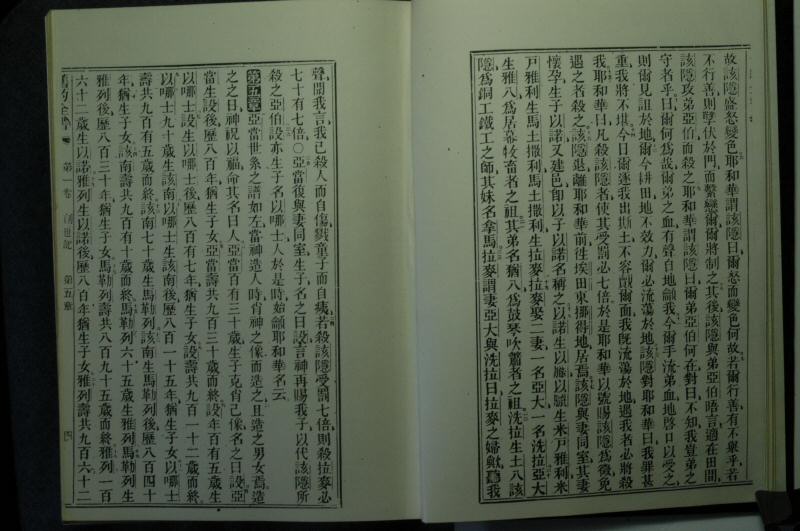 故該隱盛怒變色耶和華謂該隱曰爾怒而變色何故若爾行善有不舉乎若
不行善則孽伏於門而繫戀爾爾將制之其後該隱與弟亞伯晤言適在田間
該隱攻弟亞伯而殺之耶和華謂該隱曰爾弟亞伯何在對曰不知我豈弟之
守者乎曰爾何爲哉爾弟之血有聲自地籲我今爾手流弟血地啓口以受之
則爾見詛於地爾今耕田地不效力爾必流蕩於地該隱對耶和華曰我罪甚
重我將不堪今日爾逐我出斯土不容覿爾面我旣流蕩於地遇我者必將殺
我耶和華曰凡殺該隱者使其受罰必七倍於是耶和華以號賜該隱爲徵免
遇之者殺之該隱退離耶和華前往埃田東挪得地居焉該隱與妻同室其妻
懷孕生子以諾又建邑卽以子以諾名稱之以諾生以臘以臘生米戸雅利米
戸雅利生馬土撒利馬土撒利生拉麥拉麥娶二妻一名亞大一名洗拉亞大
生雅八爲居幕牧畜者之祖其弟名猶八爲鼓琴吹簫者之祖洗拉生土八該
隱爲銅工鐵工之師其妹名拿馬拉麥謂妻亞大與洗拉曰拉麥之婦歟聽我
聲聞我言我已殺人而自傷戮童子而自痍若殺該隱受罰七倍則殺拉麥必
七十有七倍○亞當復與妻同室生子名之曰設言神再賜我子以代該隱所
殺之亞伯設亦生子名以哪士人於是時始籲耶和華名云
第五章亞當世系之譜如左當神造人時肖神之像而造之且造之男女焉造
之之日神祝以福命其名曰人亞當百有三十歲生子克肖己像名之曰設亞
當生設後歷八百年猶生子女亞當壽共九百三十歲而終設年百有五歲生
以哪士設生以哪士後歷八百有七年猶生子女設壽共九百一十二歲而終
以哪士九十歲生該南以哪士生該南後歷八百一十五年猶生子女以哪士
壽共九百有五歲而終該南七十歲生馬勒列該南生馬勒列後歷八百四十
年猶生子女該南壽共九百有十歲而終馬勒列六十五歲生雅列馬勒列生
雅列後歷八百三十年猶生子女馬勒列壽共八百九十五歲而終雅列一百
六十二歲生以諾雅列生以諾後歷八百年猶生子女雅列壽共九百六十二
舊約全書 第一卷 創世記 第五章 四